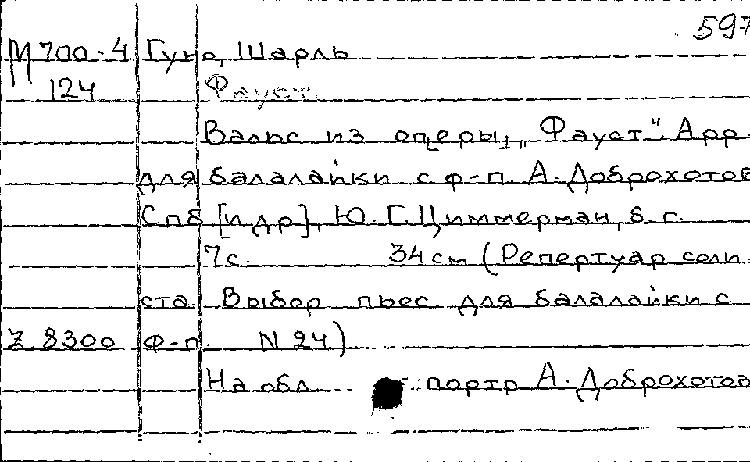 597
М 700-4 Гуно, Шарль
124 Фауст.
Вальс из оперы „Фауст". Арр.
для балалайки с ф-п. А. Доброхотов
Спб [и др], Ю. Г. Циммерман, б. г.
7с. 34 см (Репертуар соли-
ста. Выбор пьес для балалайки с
Z 8300 ф-п. N 24)
На обл. портр А. Доброхотов